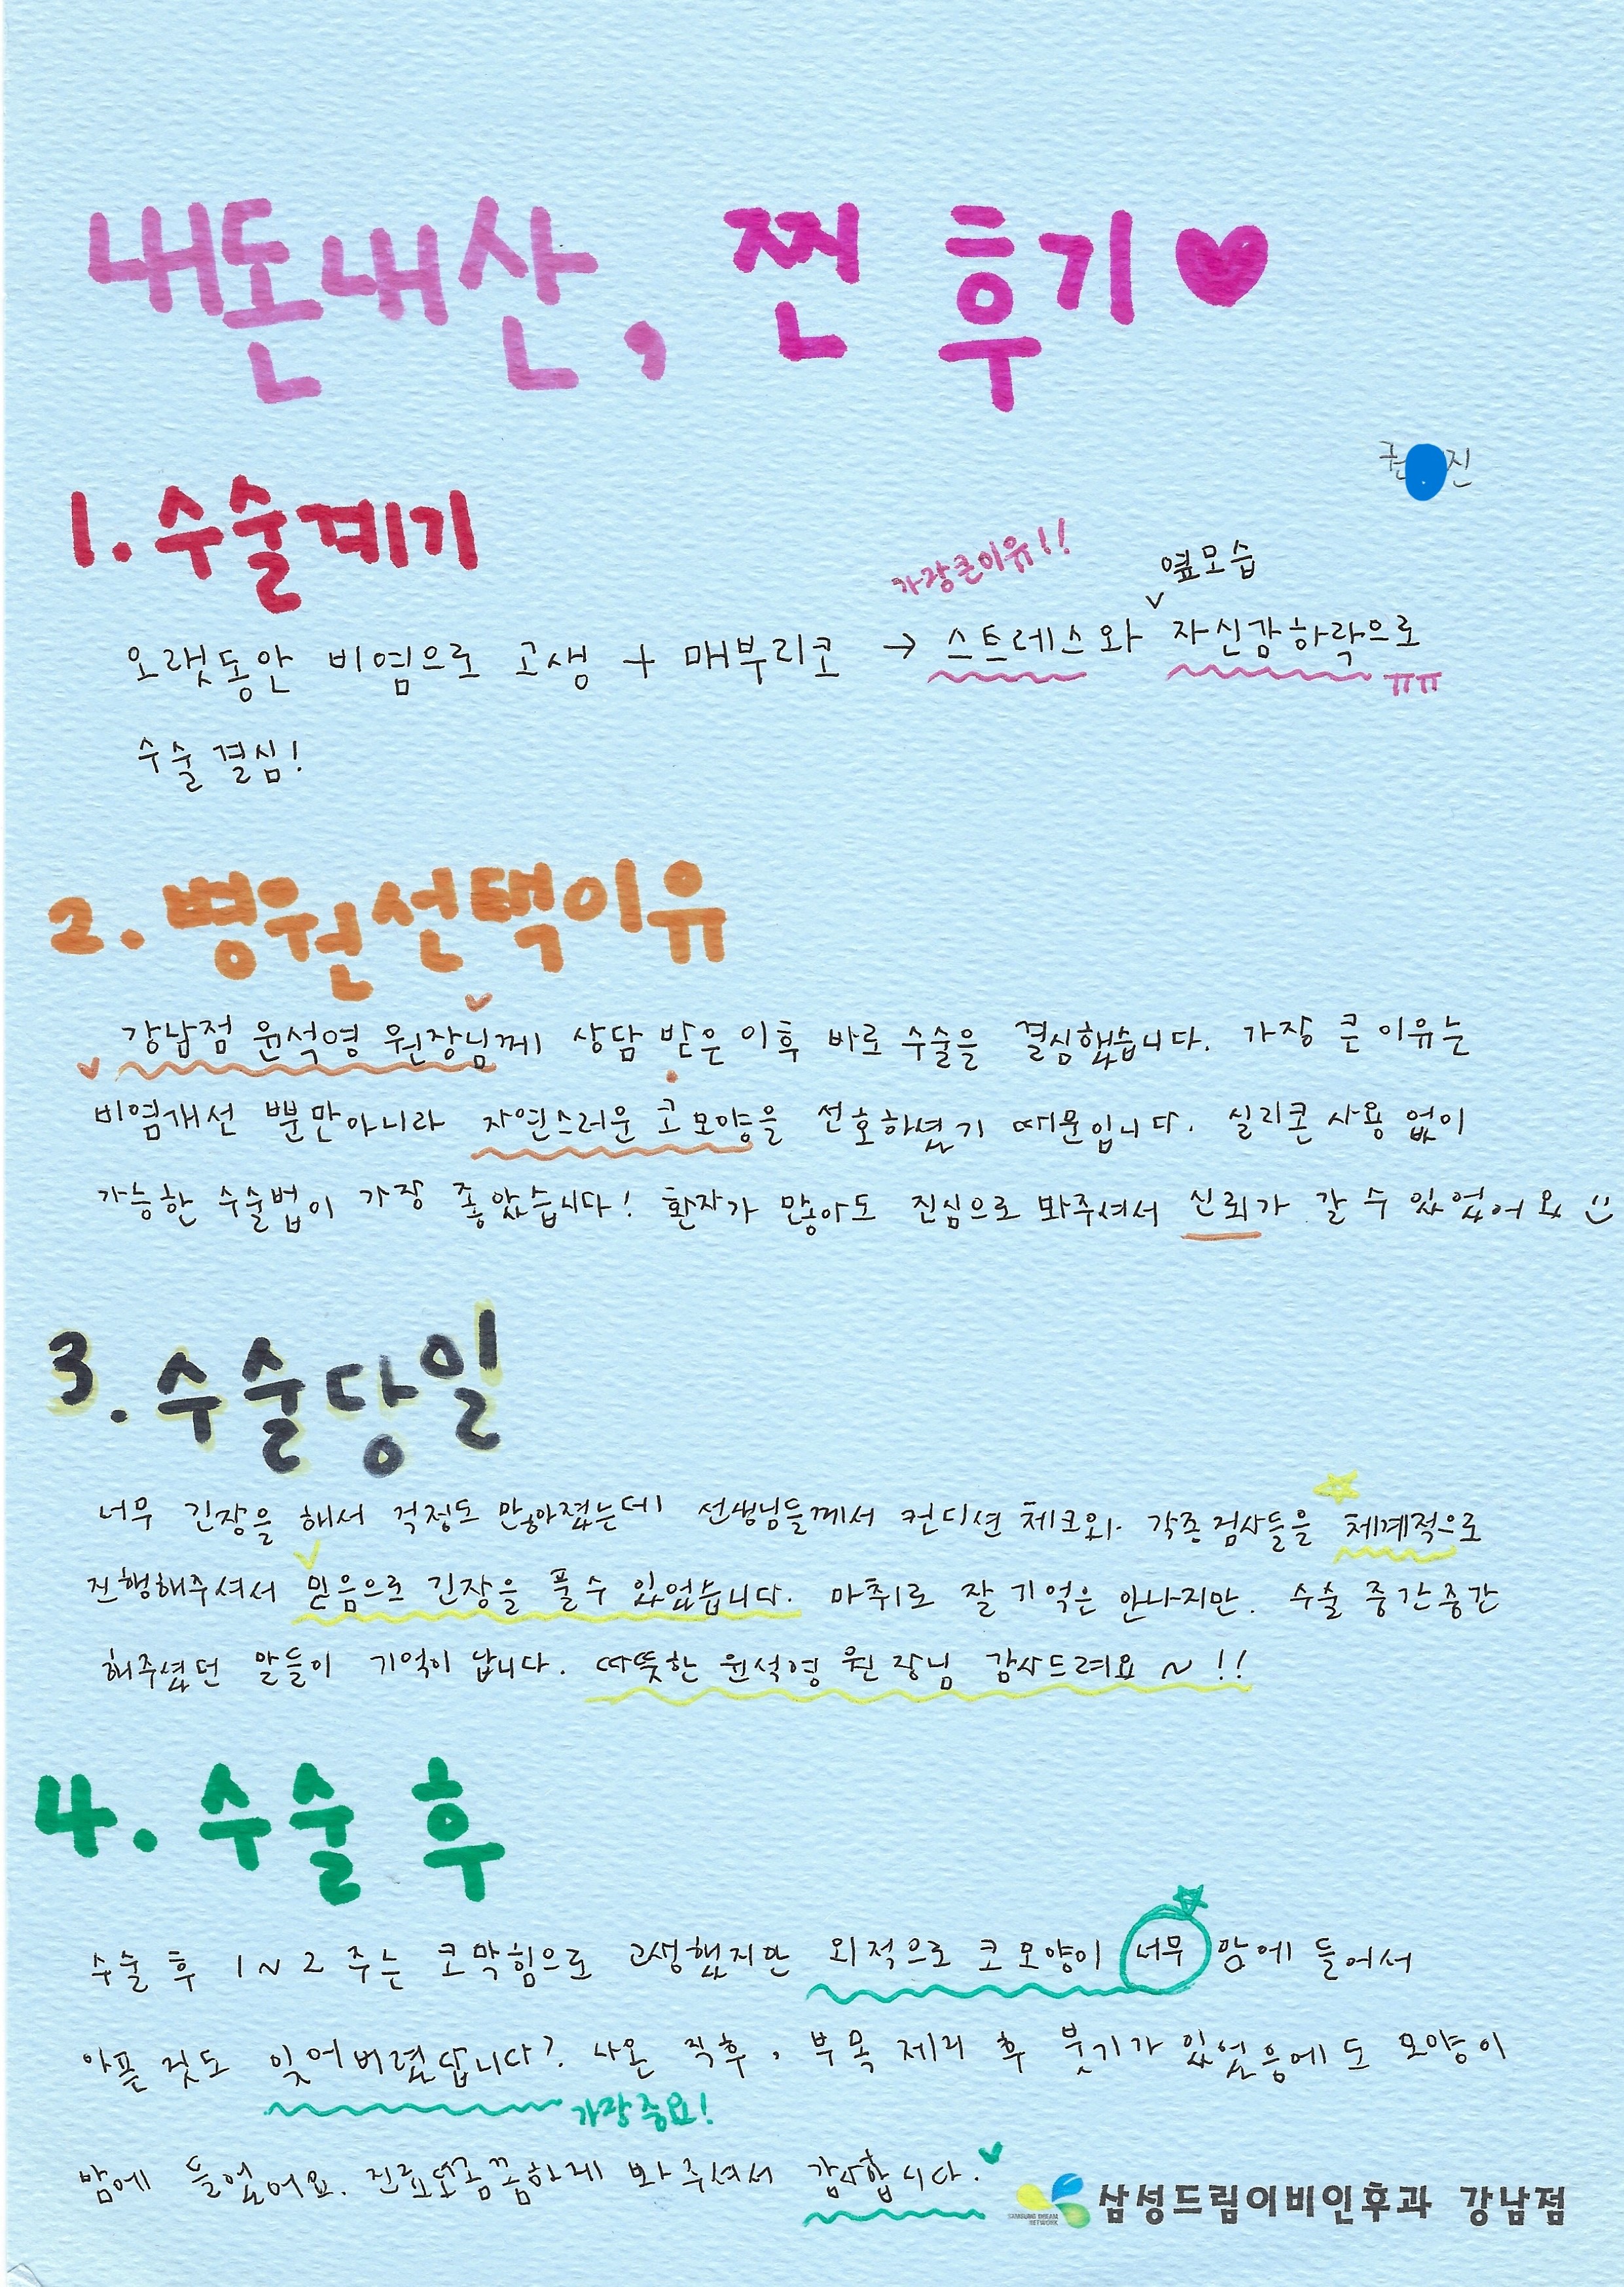 내돈내산, 찐 후기♥
권 진
1. 수술계기
가장큰이유!!
옆모습
오랫동안 비염으로 고생 + 매부리코 → 스트레스와 ∨ 자신감하락으로
ㅠㅠ
수술 결심!
2. 병원선택이유
강남점 원석영 원장님께 상담 받은 이후 바로 수술을 결심했습니다. 가장 큰 이유는
비염개선 뿐만아니라 자연스러운 코 모양을 선호하셨기 때문입니다. 실리콘 사용 없이
가능한 수술법이 가장 좋았습니다! 환자가 많아도 진심으로 봐주셔서 신뢰가 갈 수 있었어요
3. 수술당일
너무 긴장을 해서 걱정도 많아졌는데 선생님들께서 컨디션 체크와 각종검사들을 체계적으로
진행해주셔서 믿음으로 긴장을 풀수 있었습니다. 마취로 잘 기억은 안나지만. 수술 중간중간
해주셨던 말들이 기억이 납니다. 따뜻한 원석영 원장님 감사드려요~!!
4. 수술 후
수술 후 1~2주는 코막힘으로 고생했지만 외적으로 코 모양이 너무 맘에 들어서
아픈 것도 잊어버렸답니다? 직후, 부목 제거 후 붓기가 있었음에도 모양이
가장중요!
맘에 들었어요. 꼼꼼하게 봐주셔서 감사합니다.
SAMSUNG DREAM NETWORK
삼성드림이비인후과 강남점